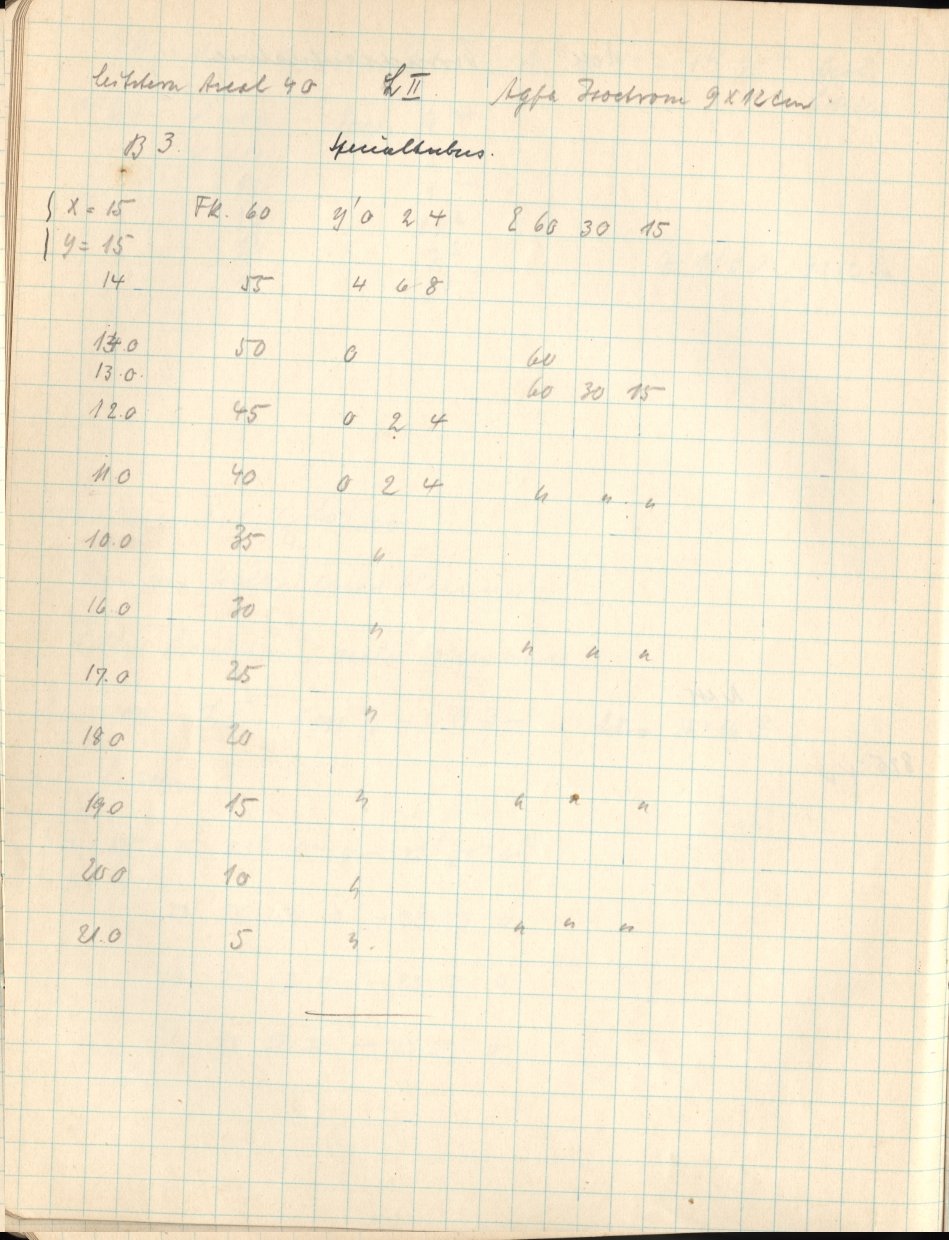 Leitstern Areal 40 L II. Agfa Isochrom 9 x 12 cm.
B 3. Spezialtubus.
x = 15 Fk. 60 y' 0 2 4 E 60 30 15
y = 15
14 55 4 6 8
50 0 60
13.0. 60 30 15
12.0 45 0 2 4
11 0 40 0 2 4 " " "
10.0 35 "
16 0 30 "
" " "
17.0 25 "
18 0 20
19.0 15 " " " "
20 0 10 "
21.0 5 " " " "